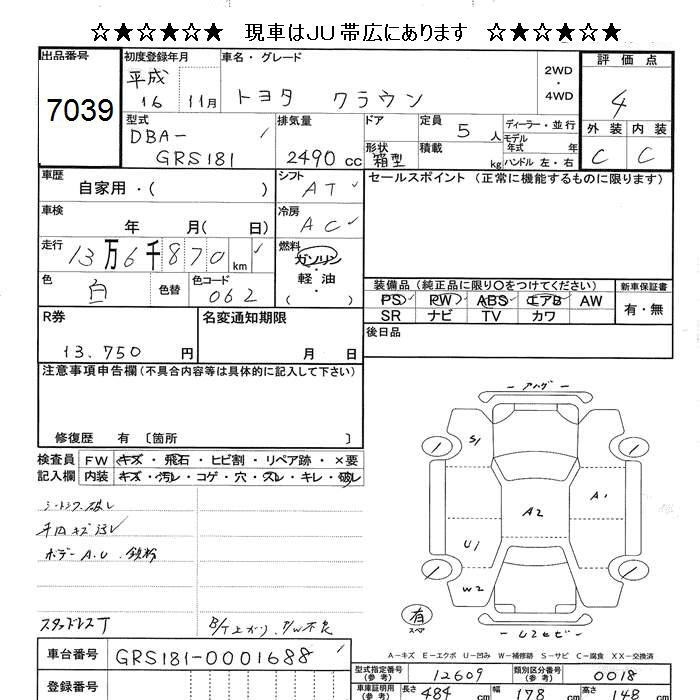 ☆★☆★☆★ 現車はJU帯広にあります ☆★☆★☆★
出品番号
7039
初度登録年月
平成
16 11月
車名・グレード
トヨタ クラウン
2WD
・
4WD
評価点
4
外装 内装
C C
型式
DBA-
GRS181
排気量
2490 cc
ドア
形状
箱型
定員 5 人
積載 kg
ディーラー・並行
モデル
年式 年
ハンドル 左・右
車歴
自家用・( )
シフト
AT
セールスポイント (正常に機能するものに限ります)
車検
年 月( 日)
冷房
AC
走行
13万6千870 km
燃料
ガソリン
・
軽油
( )
色
白
色替
色コード
062
装備品 (純正品に限り○をつけてください)
PS PW ABS エアB AW
SR ナビ TV カワ
新車保証書
有・無
R券
13,750 円
名変通知期限
月 日
後日品
注意事項申告欄(不具合内容等は具体的に記入して下さい)
修復歴 有 〔箇所 〕
検査員 FW キズ・飛石・ヒビ割・リペア跡・×要
記入欄 内装 キズ・汚レ・コゲ・穴・スレ・キレ・破レ
ボデーA.U.鉄粉
スタッドレスT
B/T上がり、P/W不良
S1
A1
A2
U1
W2
有
スペア
A-キズ E-エクボ U-凹み W-補修跡 S-サビ C-腐食 XX-交換済
車台番号
GRS181-0001688
登録番号
型式指定番号
(参考)
12609
類別区分番号
(参考)
0018
車庫証明用
(参考)
長さ 484 cm
幅 178 cm
高さ 148 cm